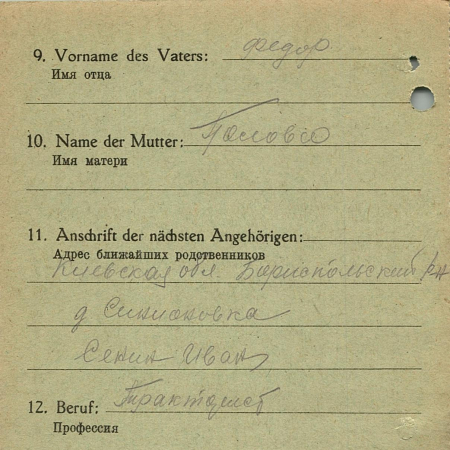 9. Vorname des Vaters: Федор
Имя отца
10. Name der Mutter:
Имя матери
11. Anschrift der nächsten Angehörigen:
Адрес ближайших родственников
Киевская обл. Бориспольский р-н
д
Сенин Иван
12. Beruf: Тракторист
Профессия